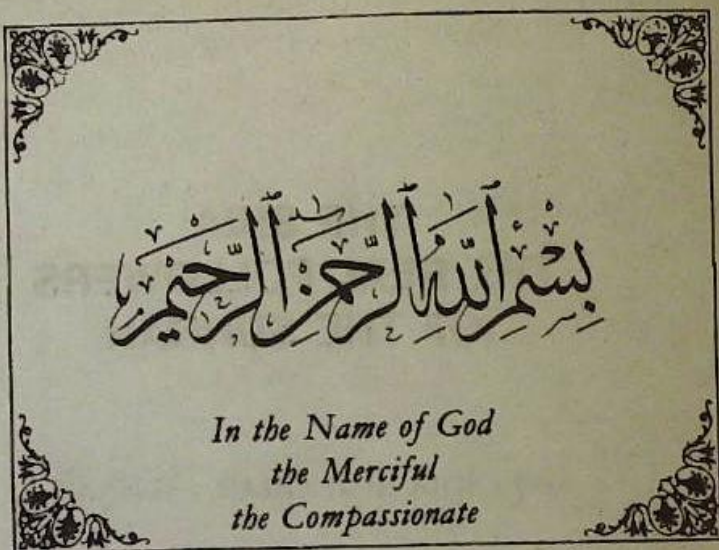 بِسْمِ اللهِ الرَّحْمٰنِ الرَّحِيْمِ
In the Name of God
the Merciful
the Compassionate